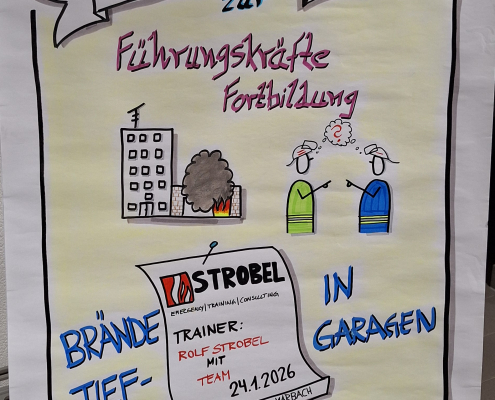 zur
Führungskräfte
Fortbildung
?
STROBEL
EMERGENCY | TRAINING | CONSULTING
TRAINER:
ROLF STROBEL
MIT
TEAM
24.1.2026
KARBACH
BRÄNDE
IN
TIEF-
GARAGEN